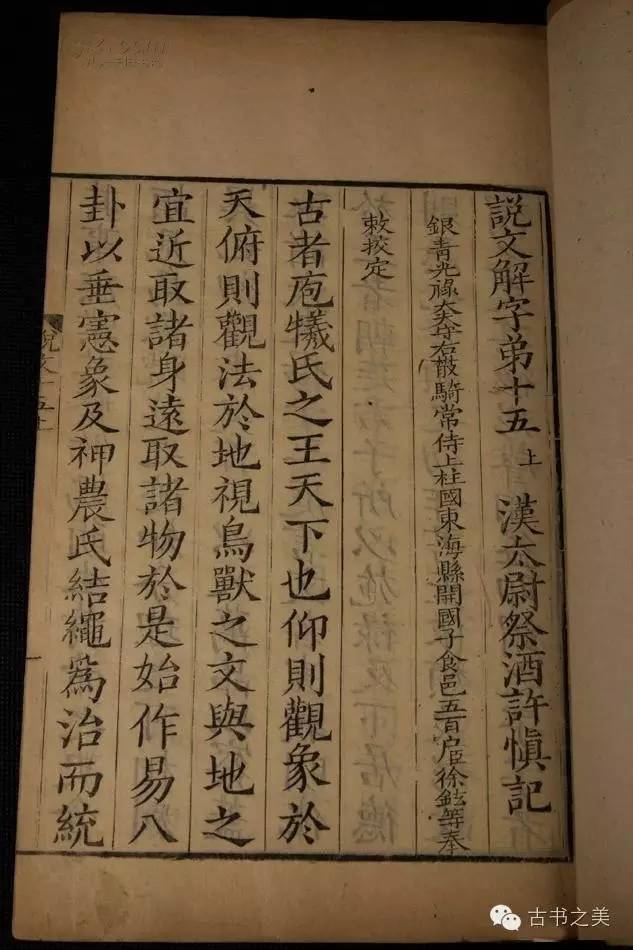 説文解字弟十五上 漢太尉祭酒許慎記
銀青光祿大夫守右散騎常侍上柱國東海縣開國子食邑五百户臣徐鉉等奉
敕挍定
古者庖犧氏之王天下也仰則觀象於
天俯則觀法於地視鳥獸之文與地之
宜近取諸身遠取諸物於是始作易八
卦以垂憲象及神農氏結繩爲治而統
説文十五上
古书之美